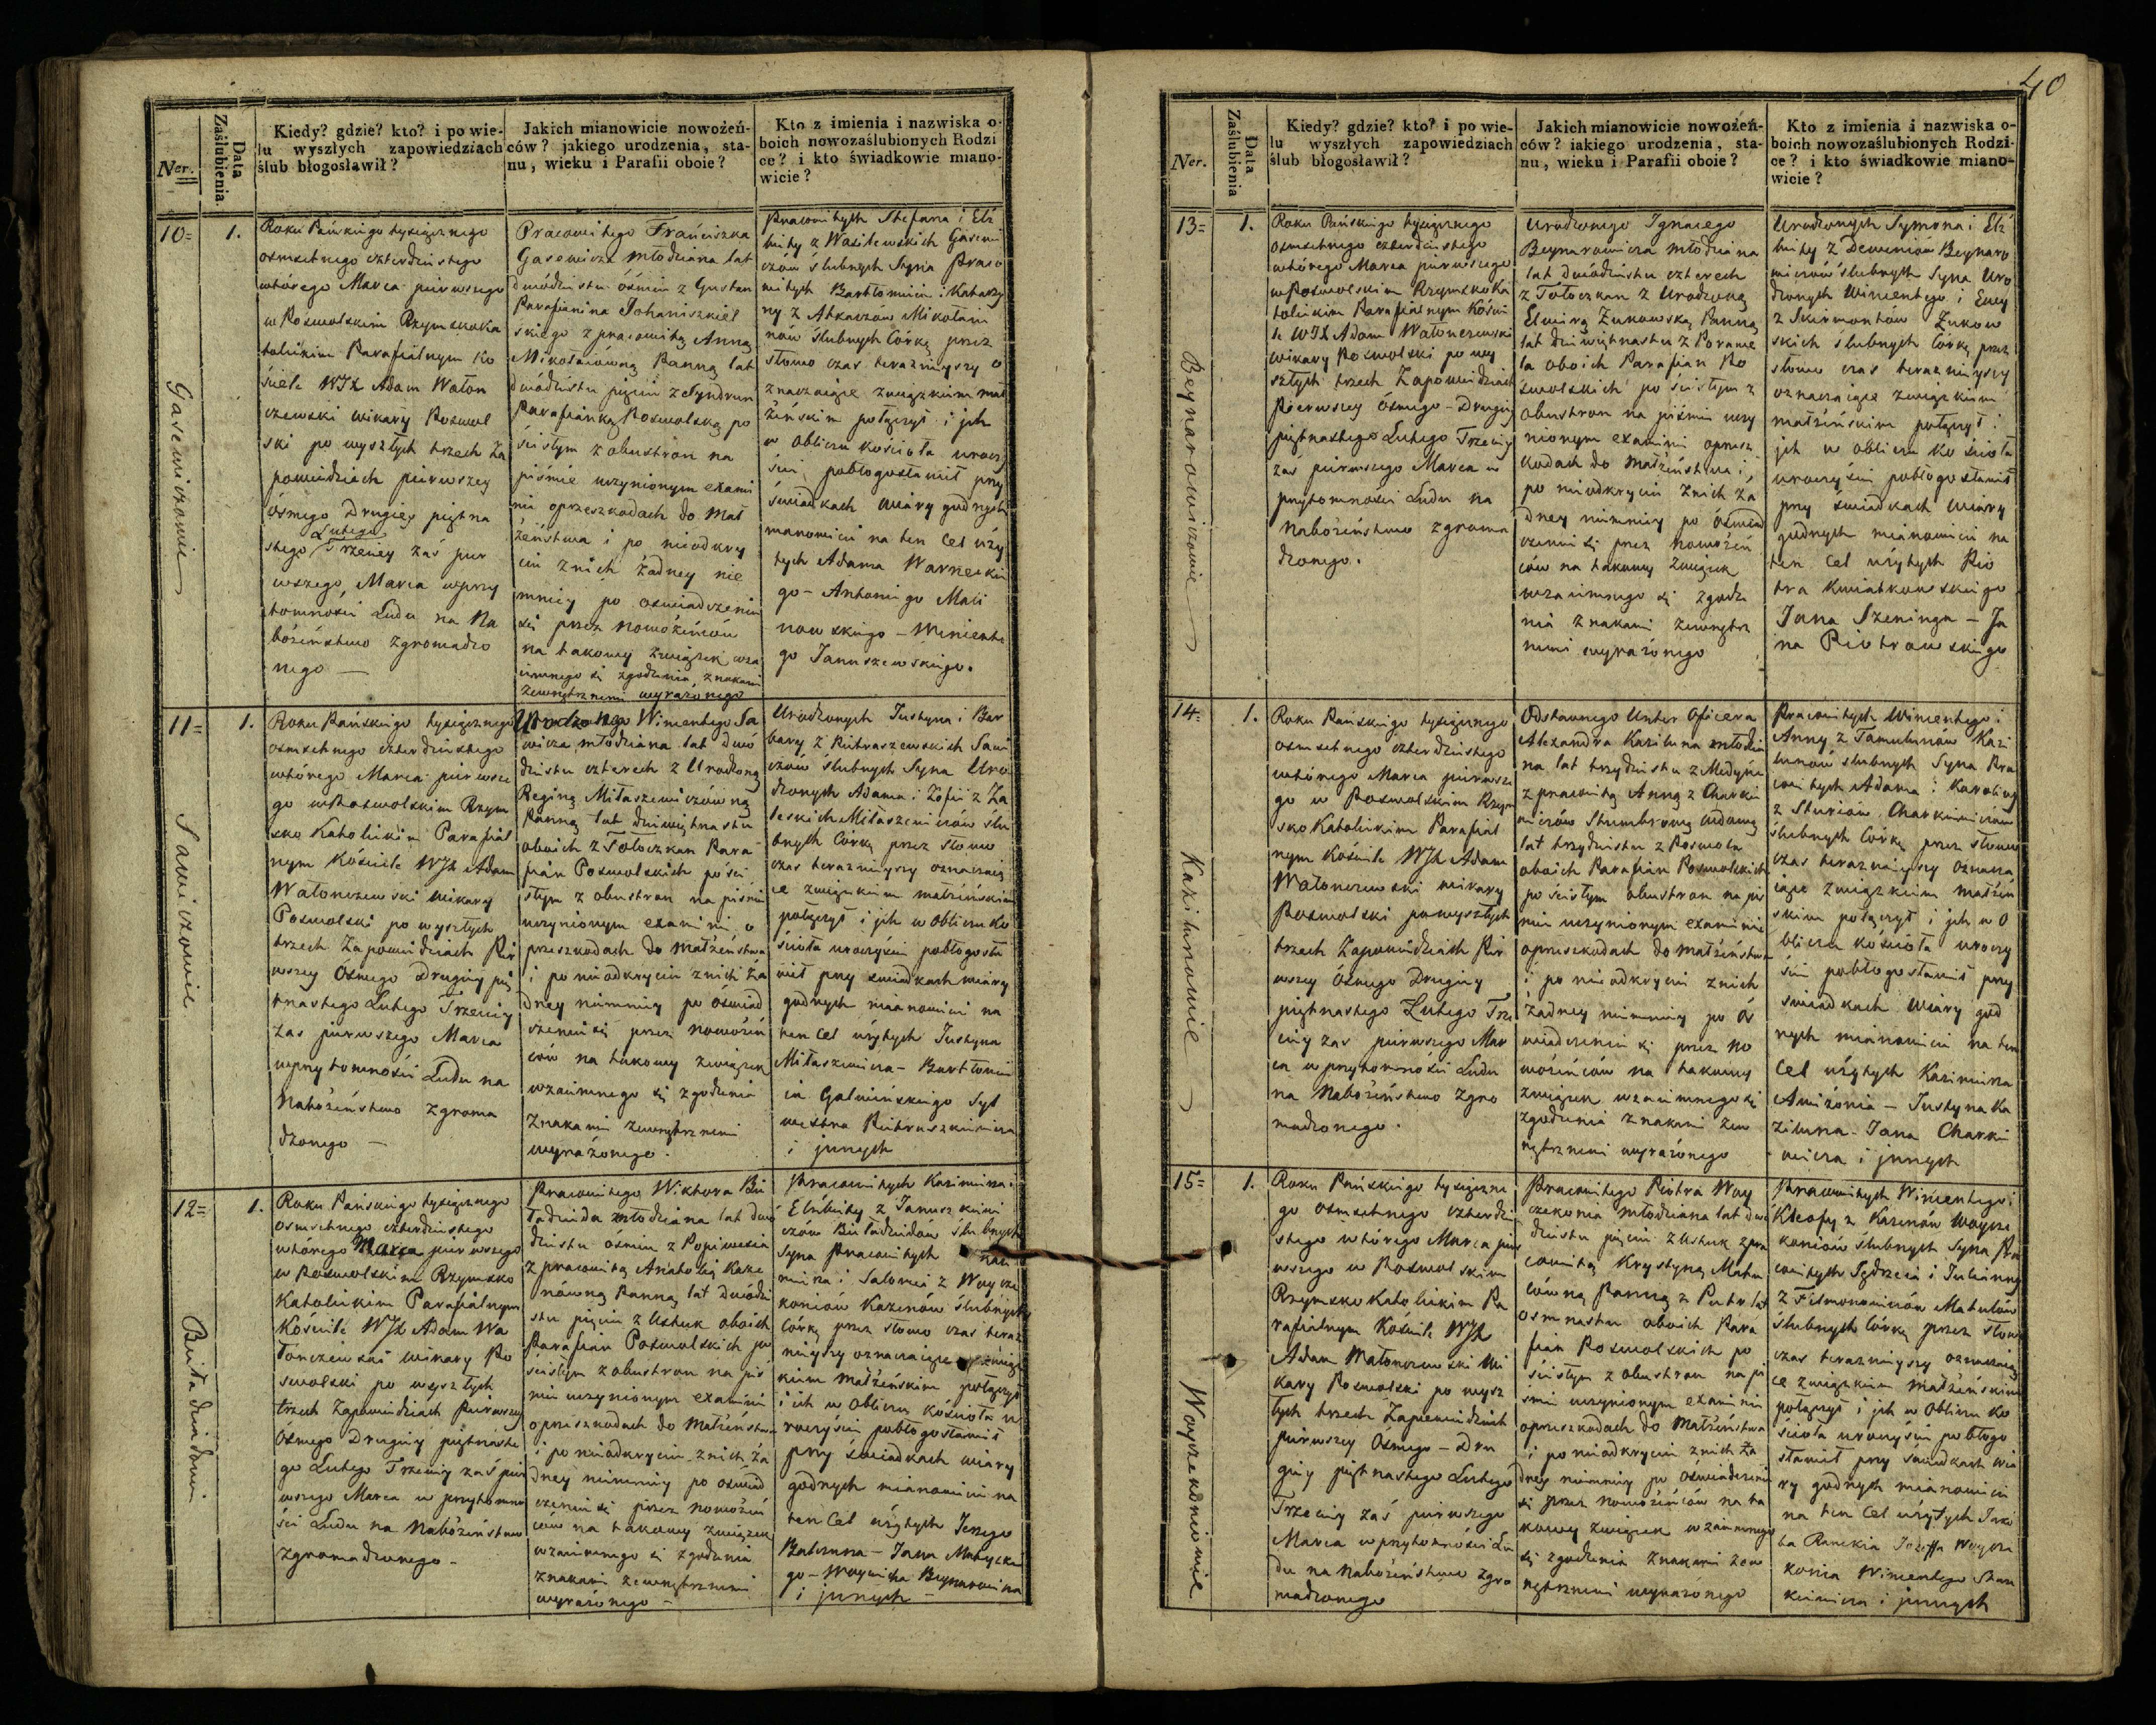 40
Ner.
Data
Zaślubienia.
Kiedy? gdzie? kto? i po wie-
lu wyszłych zapowiedziach
ślub błogosławił?
Jakich mianowicie nowożeń-
ców? jakiego urodzenia, sta-
nu, wieku i Parafii oboie?
Kto z imienia i nazwiska o-
boich nowozaślubionych Rodzi
ce? i kto świadkowie miano-
wicie?
10=
1.
Gasewiczowie
Roku Pańskiego tysiącznego
osmsetnego czterdziestego
wtórego Marca pierwszego
w Poswolskim Rzymskoka
tolickim Parafialnym Ko
ściele WJX Adam Waton
czewski wikary Poswol
ski po wyszłych trzech Za
powiedziach pierwszey
ósmego Drugiey piętna
stego Lutego Trzeciey zaś pier
wszego Marca w przy
tomności Ludu na Na
bożeństwo zgromadzo
nego —
Pracowitego Franciszka
Gasewicza młodziana lat
dwódziestu ośmiu z Gustan
Parafianina Johaniszkiel
skiego z pracowitą Anną
Mikołaiówną Panną lat
dwódziestu pięciu z Syndrun
Parafianką Poswolską po
ścisłym z obustron na
piśmie uczynionym exami
nie o przeszkodach do Mał
żeństwa i po nieodkry
ciu z nich żadney nie
mniey po oświadczeniu
się przez nowożeńców
na takowy związek wza
iemnego się zgodzenia znakami
zewnętrznemi wyrażonego
Pracowitych Stefana i Elż
biety z Wasilewskich Gasewi
czów ślubnych Syna Praco
witych Bartłomieia i Katarzy
ny z Abkarzow Mikołaiu
nów ślubnych Córkę przez
słowo czas teraznieyszy o
znaczaiące związkiem mał
żeńskim połączył i jch
w obliczu kościoła urocz
ście pobłogosławił przy
świadkach wiary godnych
manowicie na ten Cel uży
tych Adama Warnecki
go - Antoniego Mali
nowskiego - Wincente
go Januszewskiego.
11=
1.
Sawiczowie
Roku Pańskiego tysiącznego
osmsetnego czterdziestego
wtórego Marca pierwsze
go w Poswolskim Rzym
sko Katolickim Parafial
nym Kościele WJX Adam
Watonczewski wikary
Poswolski po wyszłych
trzech Zapowiedziach Pier
wszey Ósmego Drugiey pię
tnastego Lutego Trzeciey
zas pierwszego Marca
w przytomności Ludu na
Nabożeństwo zgroma
dzonego —
Urodzonego Wincentego Sa
wicza młodziana lat dwó
dziestu czterech z Urodzoną
Reginą Miłaszewiczówną
Panną lat dziewiętnastu
oboich z Tołoczkan Para
fian Poswolskich po ści
słym z obustron na piśmie
uczynionym examinie, o
przeszkodach do Małżeństwa
i po nieodkryciu z nich ża
dney niemniey po Oświad
czeniu się przez nowożeń
ców na takowy związek
wzaiemnego się zgodzenia
Znakami zewnętrznemi
wyrażonego.
Urodzonych Justyna i Bar
bary z Pietraszewskich Sawi
czów ślubnych Syna Uro
dzonych Adama i Zofii z Za
leskich Miłaszewiczów ślu
bnych Córkę przez słowo
czas teraznieyszy oznaczaią
ce związkiem małżeńskim
połączył i jch w obliczu Ko
ścioła uroczyście pobłogosła
wił przy świadkach wiary
godnych mianowicie na
ten Cel użytych Justyna
Miłaszewicza - Bartłomie
ia Galwińskiego Syl
westra Pietraszkiewicza
i jnnych
12=
1.
Roku Pańskiego tysiącznego
osmsetnego czterdziestego
wtórego Marca pierwszego
w Poswolskim Rzymsko
Katolickim Parafialnym
Kościele WJX Adam Wa
tonczewski wikary Po
swolski po wyszłych
trzech Zapowiedziach Pierwszey
Ósmego Drugiey piętnaste
go Lutego Trzeciey zaś pier
wszego Marca w przytomno
ści Ludu na Nabożeństwo
zgromadzonego -
Pracowitego Wiktora
młodziana lat dwó
dziestu osmiu z Popiwesia
z pracowitą Anatolią Kaze
nówną Panną lat dwódzie
stu pięciu z Ustuk oboich
Parafian Poswolskich po
ścisłym z obustron na piś
mie uczynionym examinie
o przeszkodach do Małżeństwa
i po nieodkryciu z nich ża
dney niemniey po oświad
czeniu się przez nowożeń
ców na takowy związek
wzaiemnego się zgodzenia
znakami zewnętrznemi
wyrażonego -
Pracowitych Kazimierza i
Elżbiety z Januszkiewi
czów ślubnych
Syna Pracowitych Kazi
mierza i Salomei z Woycze
koniów Kazenów ślubnych
Córkę przez słowo czas teraz
nieyszy oznaczaiące związ
kiem małżeńskim połączył
i ich w Obliczu kościoła u
roczyście pobłogosławił
przy świadkach wiary
godnych mianowicie na
ten Cel użytych Jerzego
Balczuna - Jana
go - Woyciecha Beynarowicza
i jnnych -
Ner.
Data
Zaślubienia
Kiedy? gdzie? kto? i po wie-
lu wyszłych zapowiedziach
ślub błogosławił?
Jakich mianowicie nowożeń-
ców? iakiego urodzenia, sta-
nu, wieku i Parafii oboie?
Kto z imienia i nazwiska o-
boich nowozaślubionych Rodzi-
ce? i kto świadkowie miano-
wicie?
13=
1.
Beynarowiczowie
Roku Pańskiego tysiącznego
osmsetnego czterdziestego
wtórego Marca pierwszego
w Poswolskim RzymskoKa
tolickim Parafialnym Kości
le WJX Adam Watonczewski
wikary Poswolski po wy
szłych trzech Zapowiedziach
Pierwszey Ósmego - Drugiey
piętnastego Lutego Trzeciey
zaś pierwszego Marca w
przytomności Ludu na
Nabożeństwo zgroma
dzonego.
Urodzonego Ignacego
Beynarowicza młodziana
lat dwódziestu czterech
z Tołoczkan z Urodzoną
Elwirą Żukowską Panną
lat dziewiętnastu z Porame
la oboich Parafian Po
swolskich po ścisłym z
obustron na piśmie uczy
nionym examinie o przesz
kodach do małżeństwa i
po nieodkryciu z nich ża
dney niemniey po Oświad
czeniu się przez nowożeń
ców na takowy związek
wzaiemnego się zgodze
nia znakami zewnętrz
nemi wyrażonego
Urodzonych Symona i Elż
biety z Beynaro
wiczów ślubnych Syna Uro
dzonych Wincentego i Ewy
z Skirmontów Żukow
skich ślubnych Córkę przez
słowo czas teraznieyszy
oznaczaiące związkiem
małżeńskim połączył i
jch w obliczu Kościoła
uroczyście pobłogosławił
przy świadkach wiary
godnych mianowicie na
ten Cel użytych Pio
tra Kwiatkowskiego
Jana Szeninga - Ja
na Piotrowskiego
14=
1.
Kazilunowie
Roku Pańskiego tysiącznego
osmsetnego czterdziestego
wtórego Marca pierwsze
go w Poswolskim Rzym
sko Katolickim Parafial
nym Kościele WJX Adam
Watonczewski wikary
Poswolski po wyszłych
trzech Zapowiedziach Pier
wszey Ósmego Drugiey
piętnastego Lutego Trze
ciey zas pierwszego Mar
ca w przytomności Ludu
na Nabożeństwo zgro
madzonego.
Odstawnego Unter Oficera
Alexandra Kaziluna młodzia
na lat trzydziestu z
z pracowitą Anną z Charki
wiczów Stumbrową wdową
lat trzydziestu z Poswola
oboich Parafian Poswolskich
po ścisłym obustron na piś
mie uczynionym examinie
o przeszkodach do małżeństwa
i po nieodkryciu z nich
żadney niemniey po Oś
wiadczeniu się przez no
wożeńców na takowy
związek wzaiemnego się
zgodzenia znakami zew
nętrznemi wyrażonego
Pracowitych Wincentego i
Anny z Tamulunów Kazi
lunów ślubnych Syna Pra
cowitych Adama i Karoliny
z Charkiewiczów
ślubnych Córkę przez słowo
czas teraznieyszy oznacza
iące związkiem małżeń
skim połączył i jch w O
bliczu kościoła uroczy
ście pobłogosławił przy
świadkach wiary god
nych mianowicie na ten
Cel użytych Kazimierza
- Justyna Ka
ziluna - Jana Charki
wicza i jnnych
15=
1.
Woyczekoniowie
Roku Pańskiego tysiączne
go osmsetnego czterdzie
stego wtórego Marca pier
wszego w Poswolskim
Rzymsko Katolickim Pa
rafialnym Kościele WJX
Adam Watonczewski Wi
kary Poswolski po wysz
łych trzech Zapowiedziach
pierwszey Ósmego - Dru
giey piętnastego Lutego
Trzeciey zaś pierwszego
Marca w przytomności Lu
du na Nabożeństwo zgro
madzonego
Pracowitego Piotra Woy
czekonia młodziana lat dwó
dziestu pięciu z Ustuk z pra
cowitą Krystyną Matu
lówną Panną z lat
osmnastu oboich Para
fian Poswolskich po
ścisłym z obustron na pi
śmie uczynionym examinie
o przeszkodach do Małżeństwa
i po nieodkryciu z nich ża
dney niemniey po Oświadczeniu
się przez nowożeńców na ta
kowy związek wzaiemnego
się zgodzenia znakami zew
nętrznemi wyrażonego
Pracowitych Wincentego i
Kleofy z Kazenów Woycze
koniów ślubnych Syna Pra
cowitych Jędrzeia i Julianny
z Filmonowiczów Matulów
ślubnych Córkę przez słowo
czas teraznieyszy oznaczaią
ce związkiem małżeńskim
połączył i jch w Obliczu Ko
ścioła uroczyście pobłogo
sławił przy świadkach wia
ry godnych mianowicie
na ten Cel użytych Jako
ba Józeffa Woycze
konia Wincentego Stan
kiewicza i jnnych